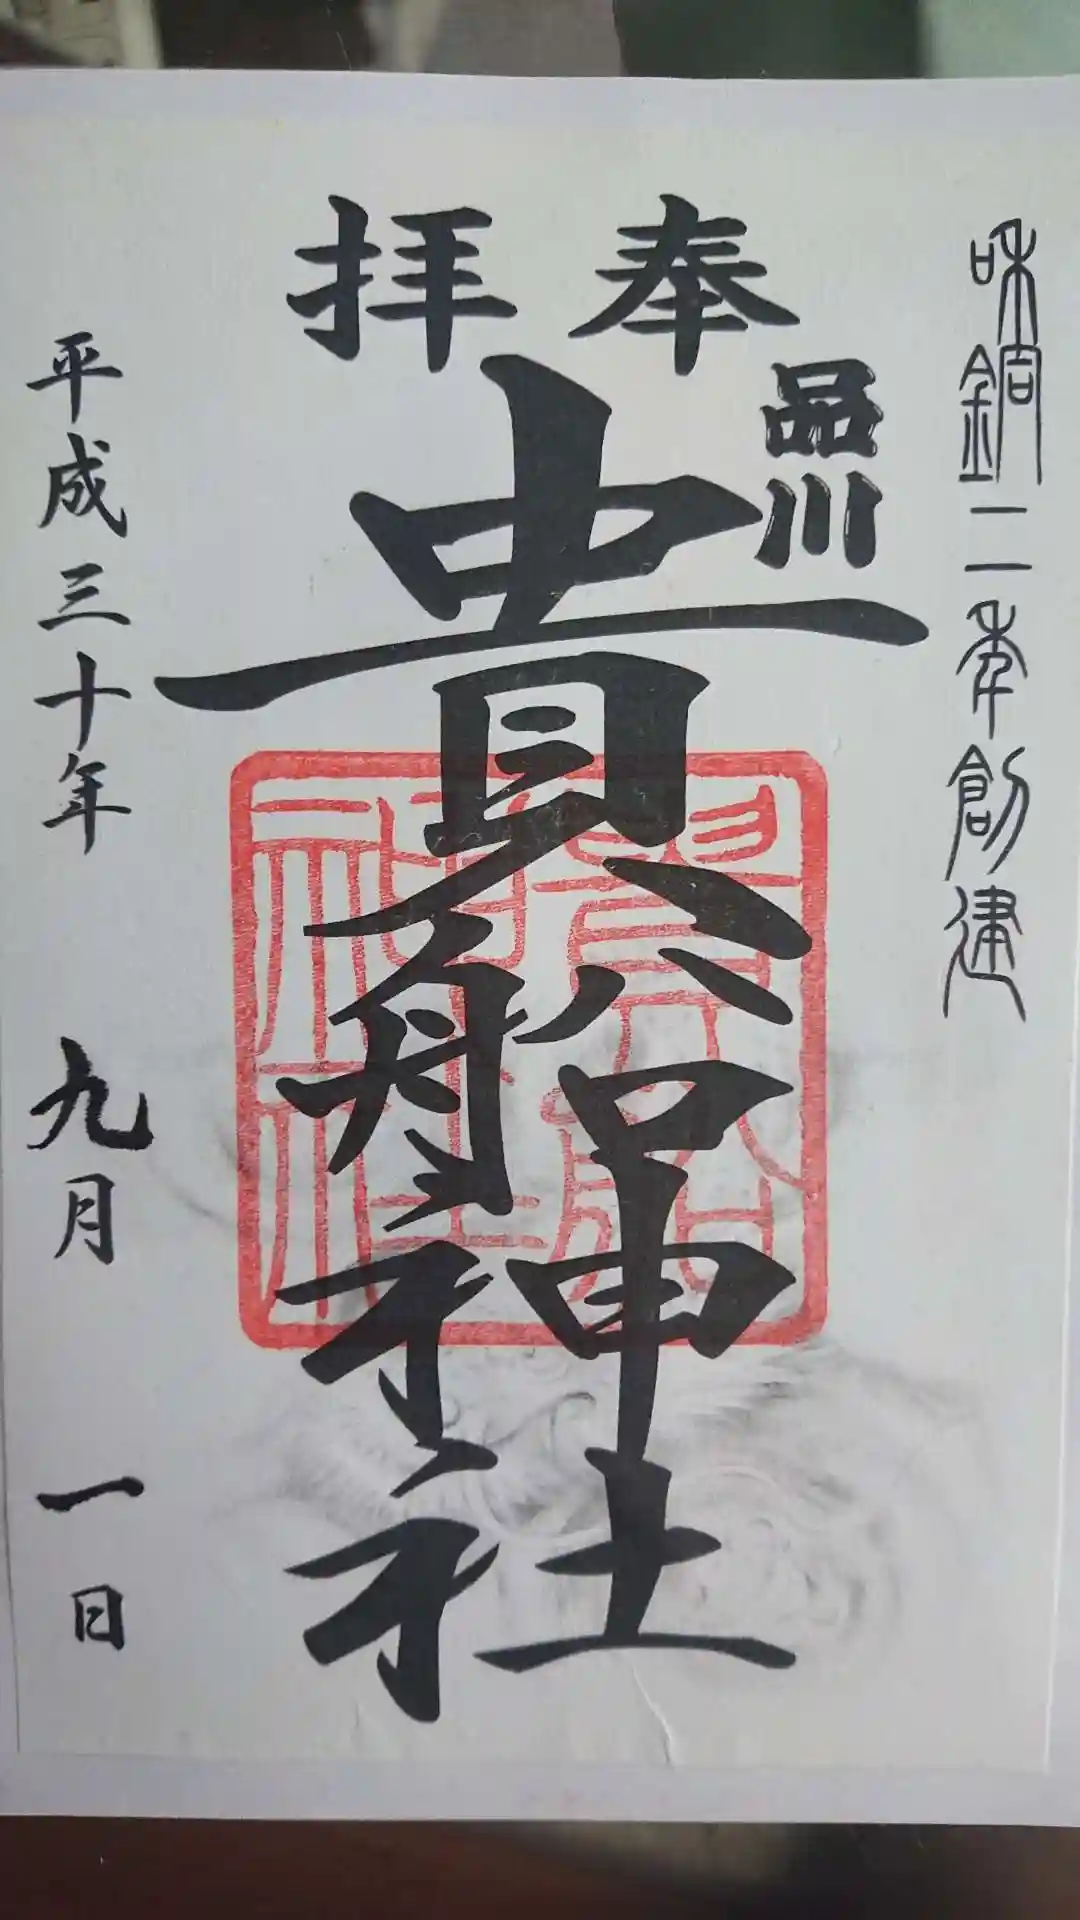 咊銅二年創建
奉拝
品川
貴船神社
貴船神社
平成三十年 九月 一日